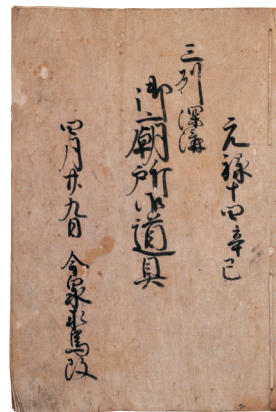 元禄十四辛巳
三州深溝
御廟所御道具
四月廿九日 今泉求馬改